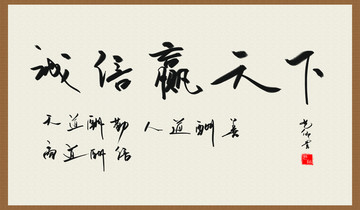 诚信赢天下
天道酬勤 人道酬善
商道酬信